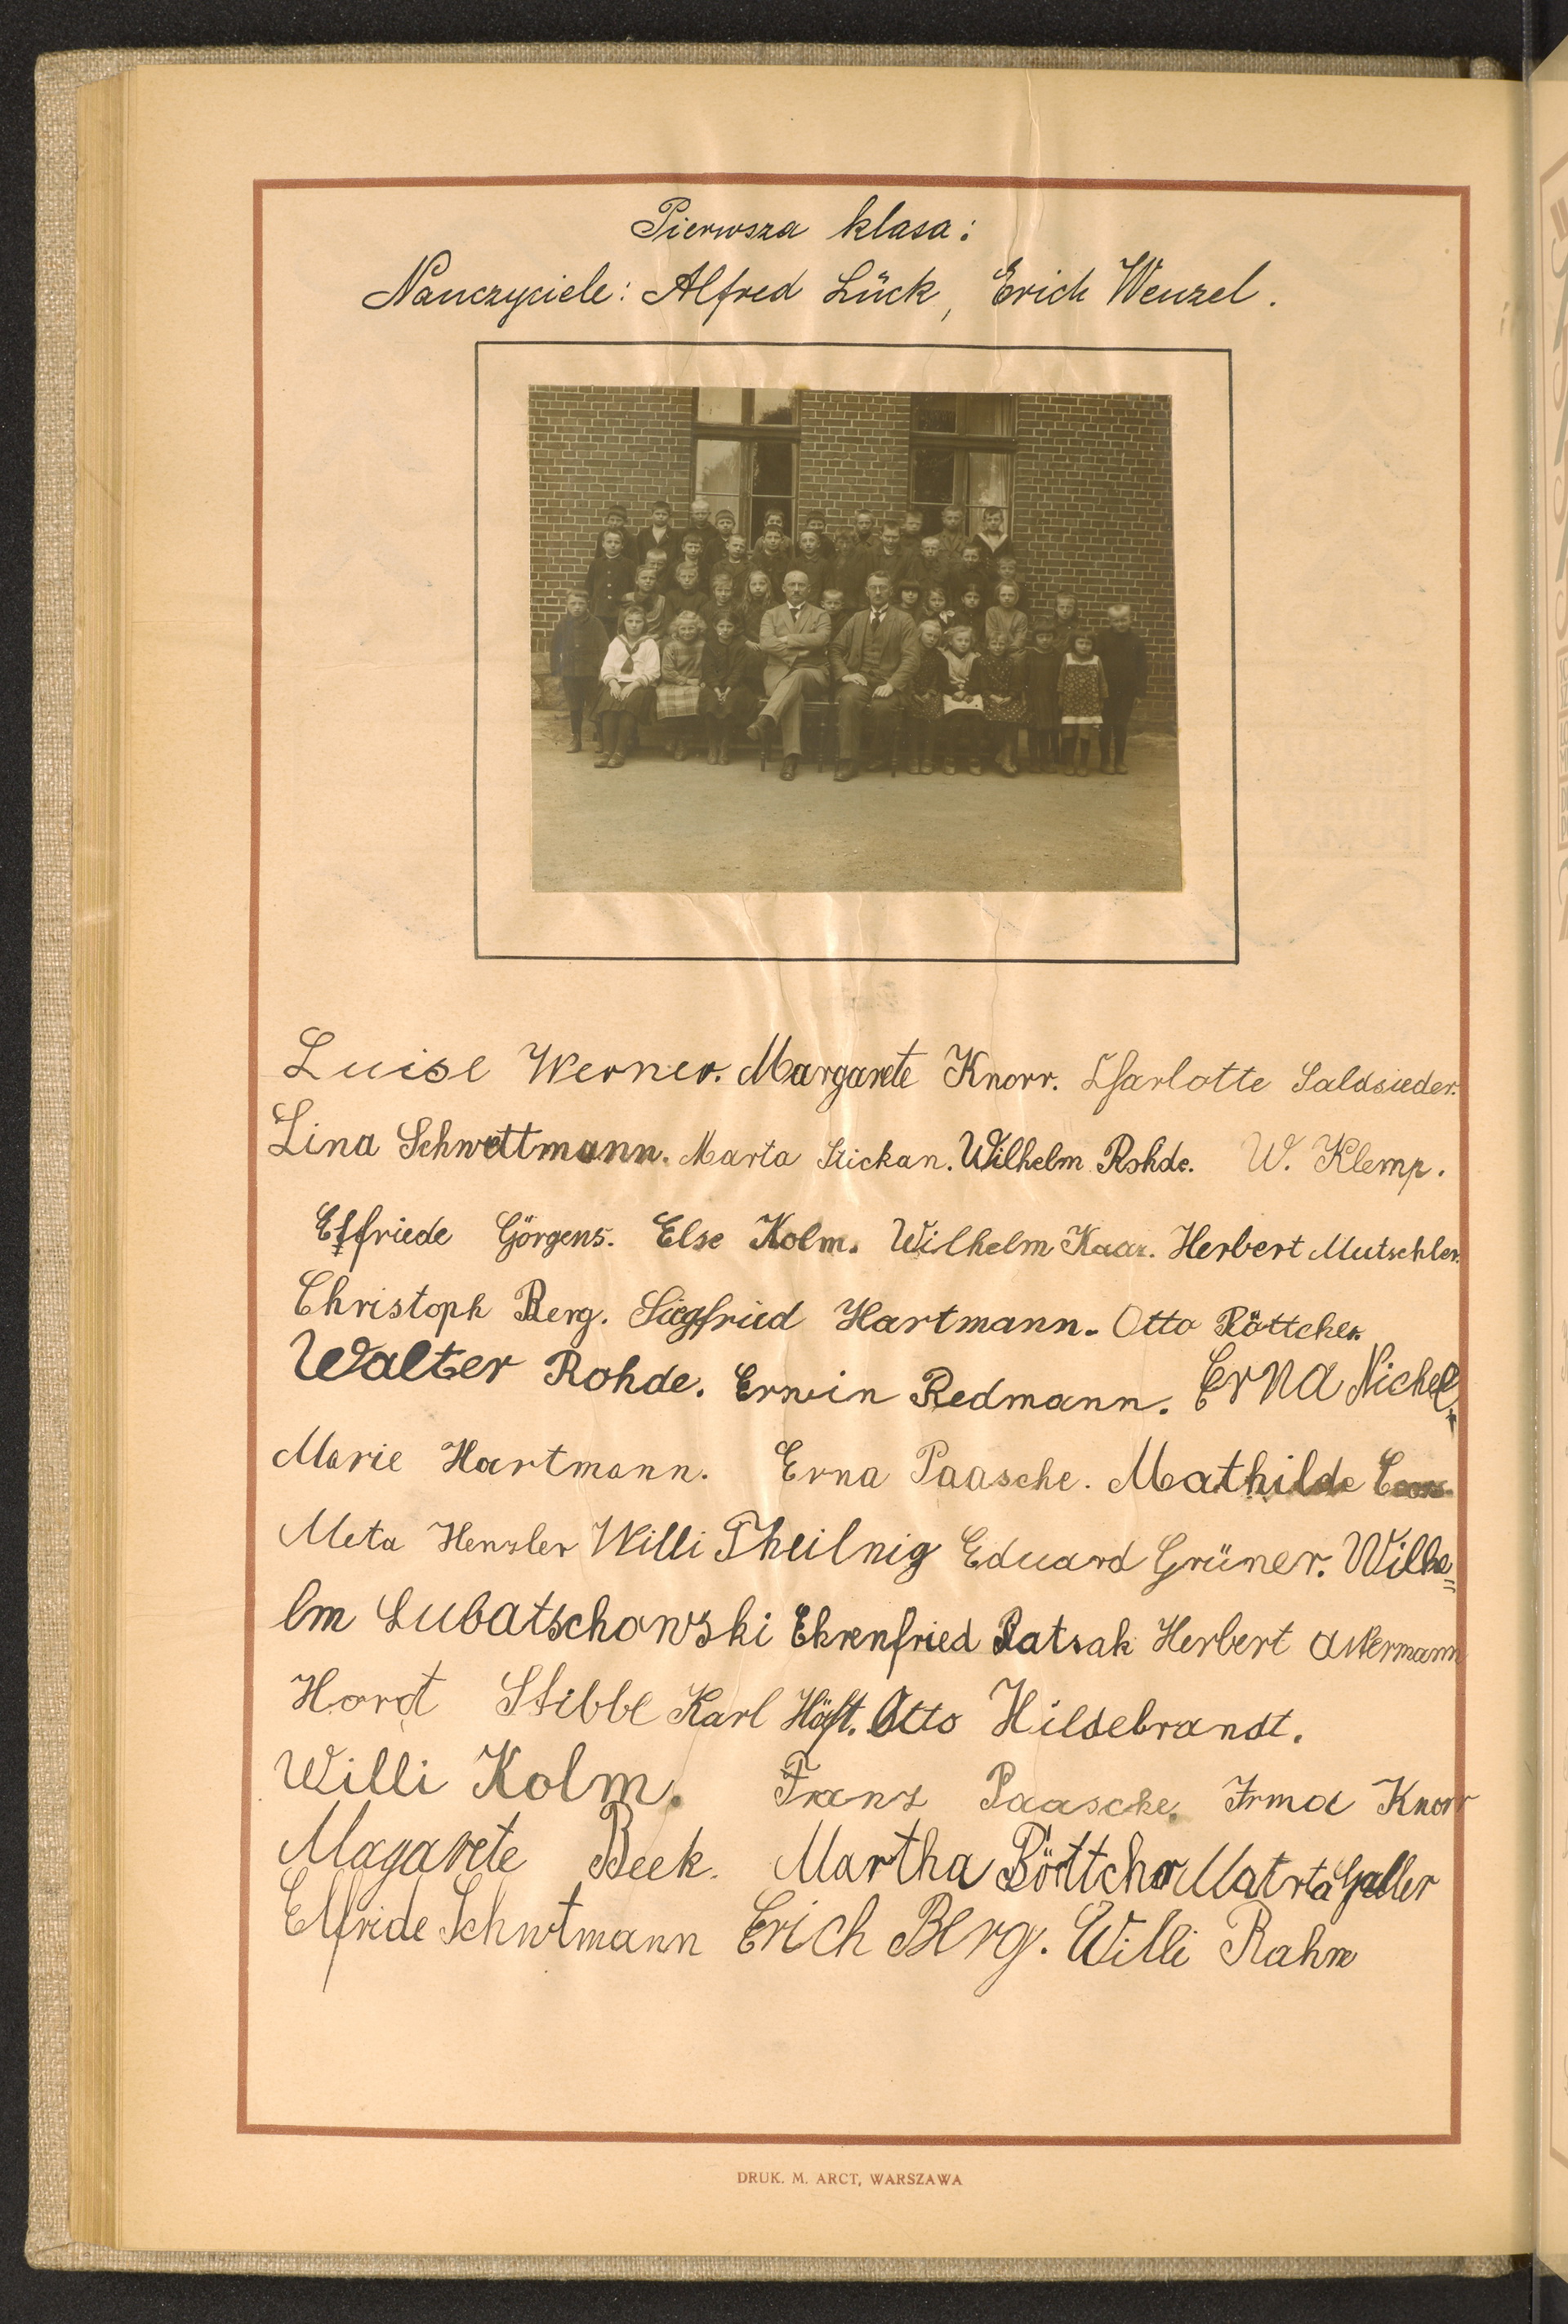 Pierwsza klasa:
Nauczyciele: Alfred Lück, Erich Wenzel.
Luise Werner. Margarete Knorr. Charlotte Saldsieder.
Lina Schwettmann. Marta Stickan. Wilhelm Rohde. W. Klemp.
Elfriede Görgens. Else Kolm. Wilhelm Kaaz. Herbert Mutschler.
Christoph Berg. Siegfried Hartmann. Otto Böttcher.
Walter Rohde. Erwin Redmann. Erna Nickel.
Marie Hartmann. Erna Paasche. Mathilde
Meta Henzler Willi Theilnig Eduard Grüner. Wilhe=
lm Lubatschowski Ehrenfried Patzak Herbert Akermann
Hordt Stibbe Karl Höft. Otto Hildebrandt.
Willi Kolm. Franz Paasche. Irma Knorr
Magarete Beek. Martha Böttcher Matrta Galler
Elfride Schwtmann Erich Berg. Willi Rahm
DRUK. M. ARCT, WARSZAWA